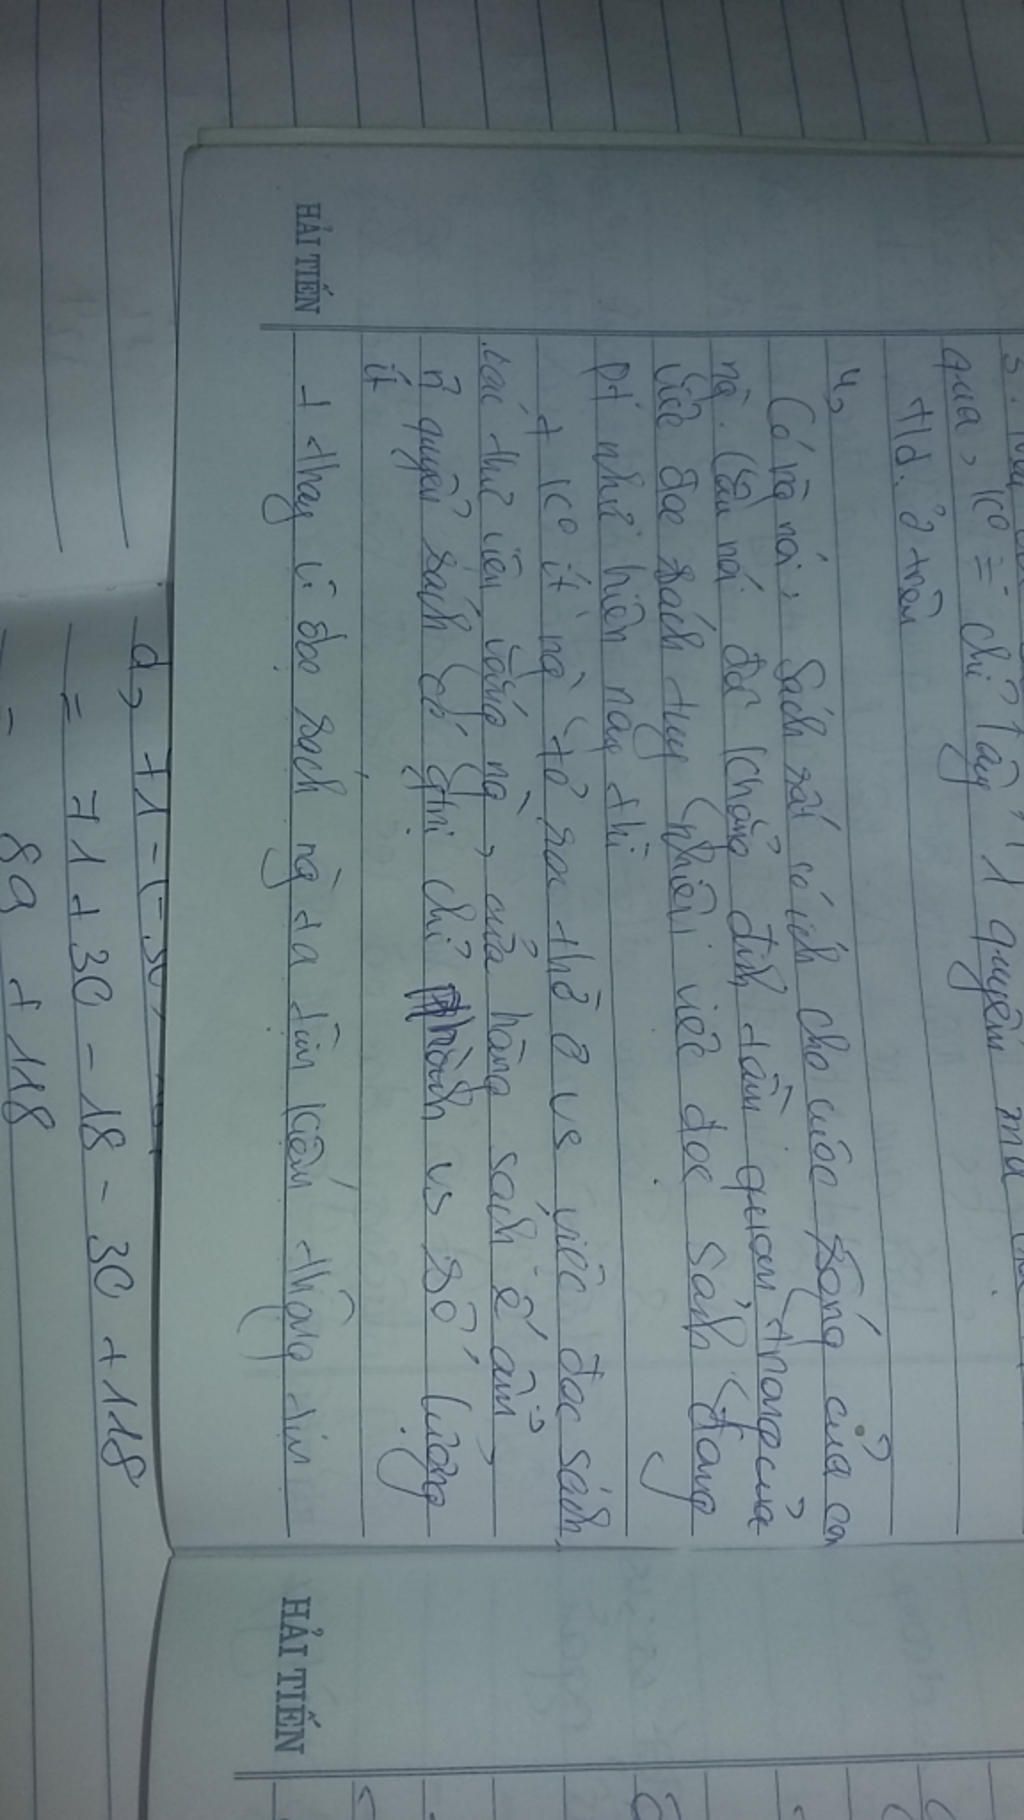 qua, ko = chỉ lấy 1 quyển mà
tld. ở trên
4,
Có ng nói: Sách rất có ích cho cuộc sống của con
ng. Câu nói đó khẳng định tầm quan trọng của
việc đọc sách tuy nhiên việc đọc sách đang
pt như hiện nay thì
+ ko ít ng tỏ ra thờ ơ vs việc đọc sách,
các thư viện vắng ng, cửa hàng sách ế ẩm,
n quyển sách có ghi chỉ thành vs số lượng
ít
+ thay vì đọc sách ng ta tìm kiếm thông tin
HẢI TIẾN
HẢI TIẾN
d, 71 - (-30)
= 71 + 30 - 18 - 30 + 118
= 89 + 118